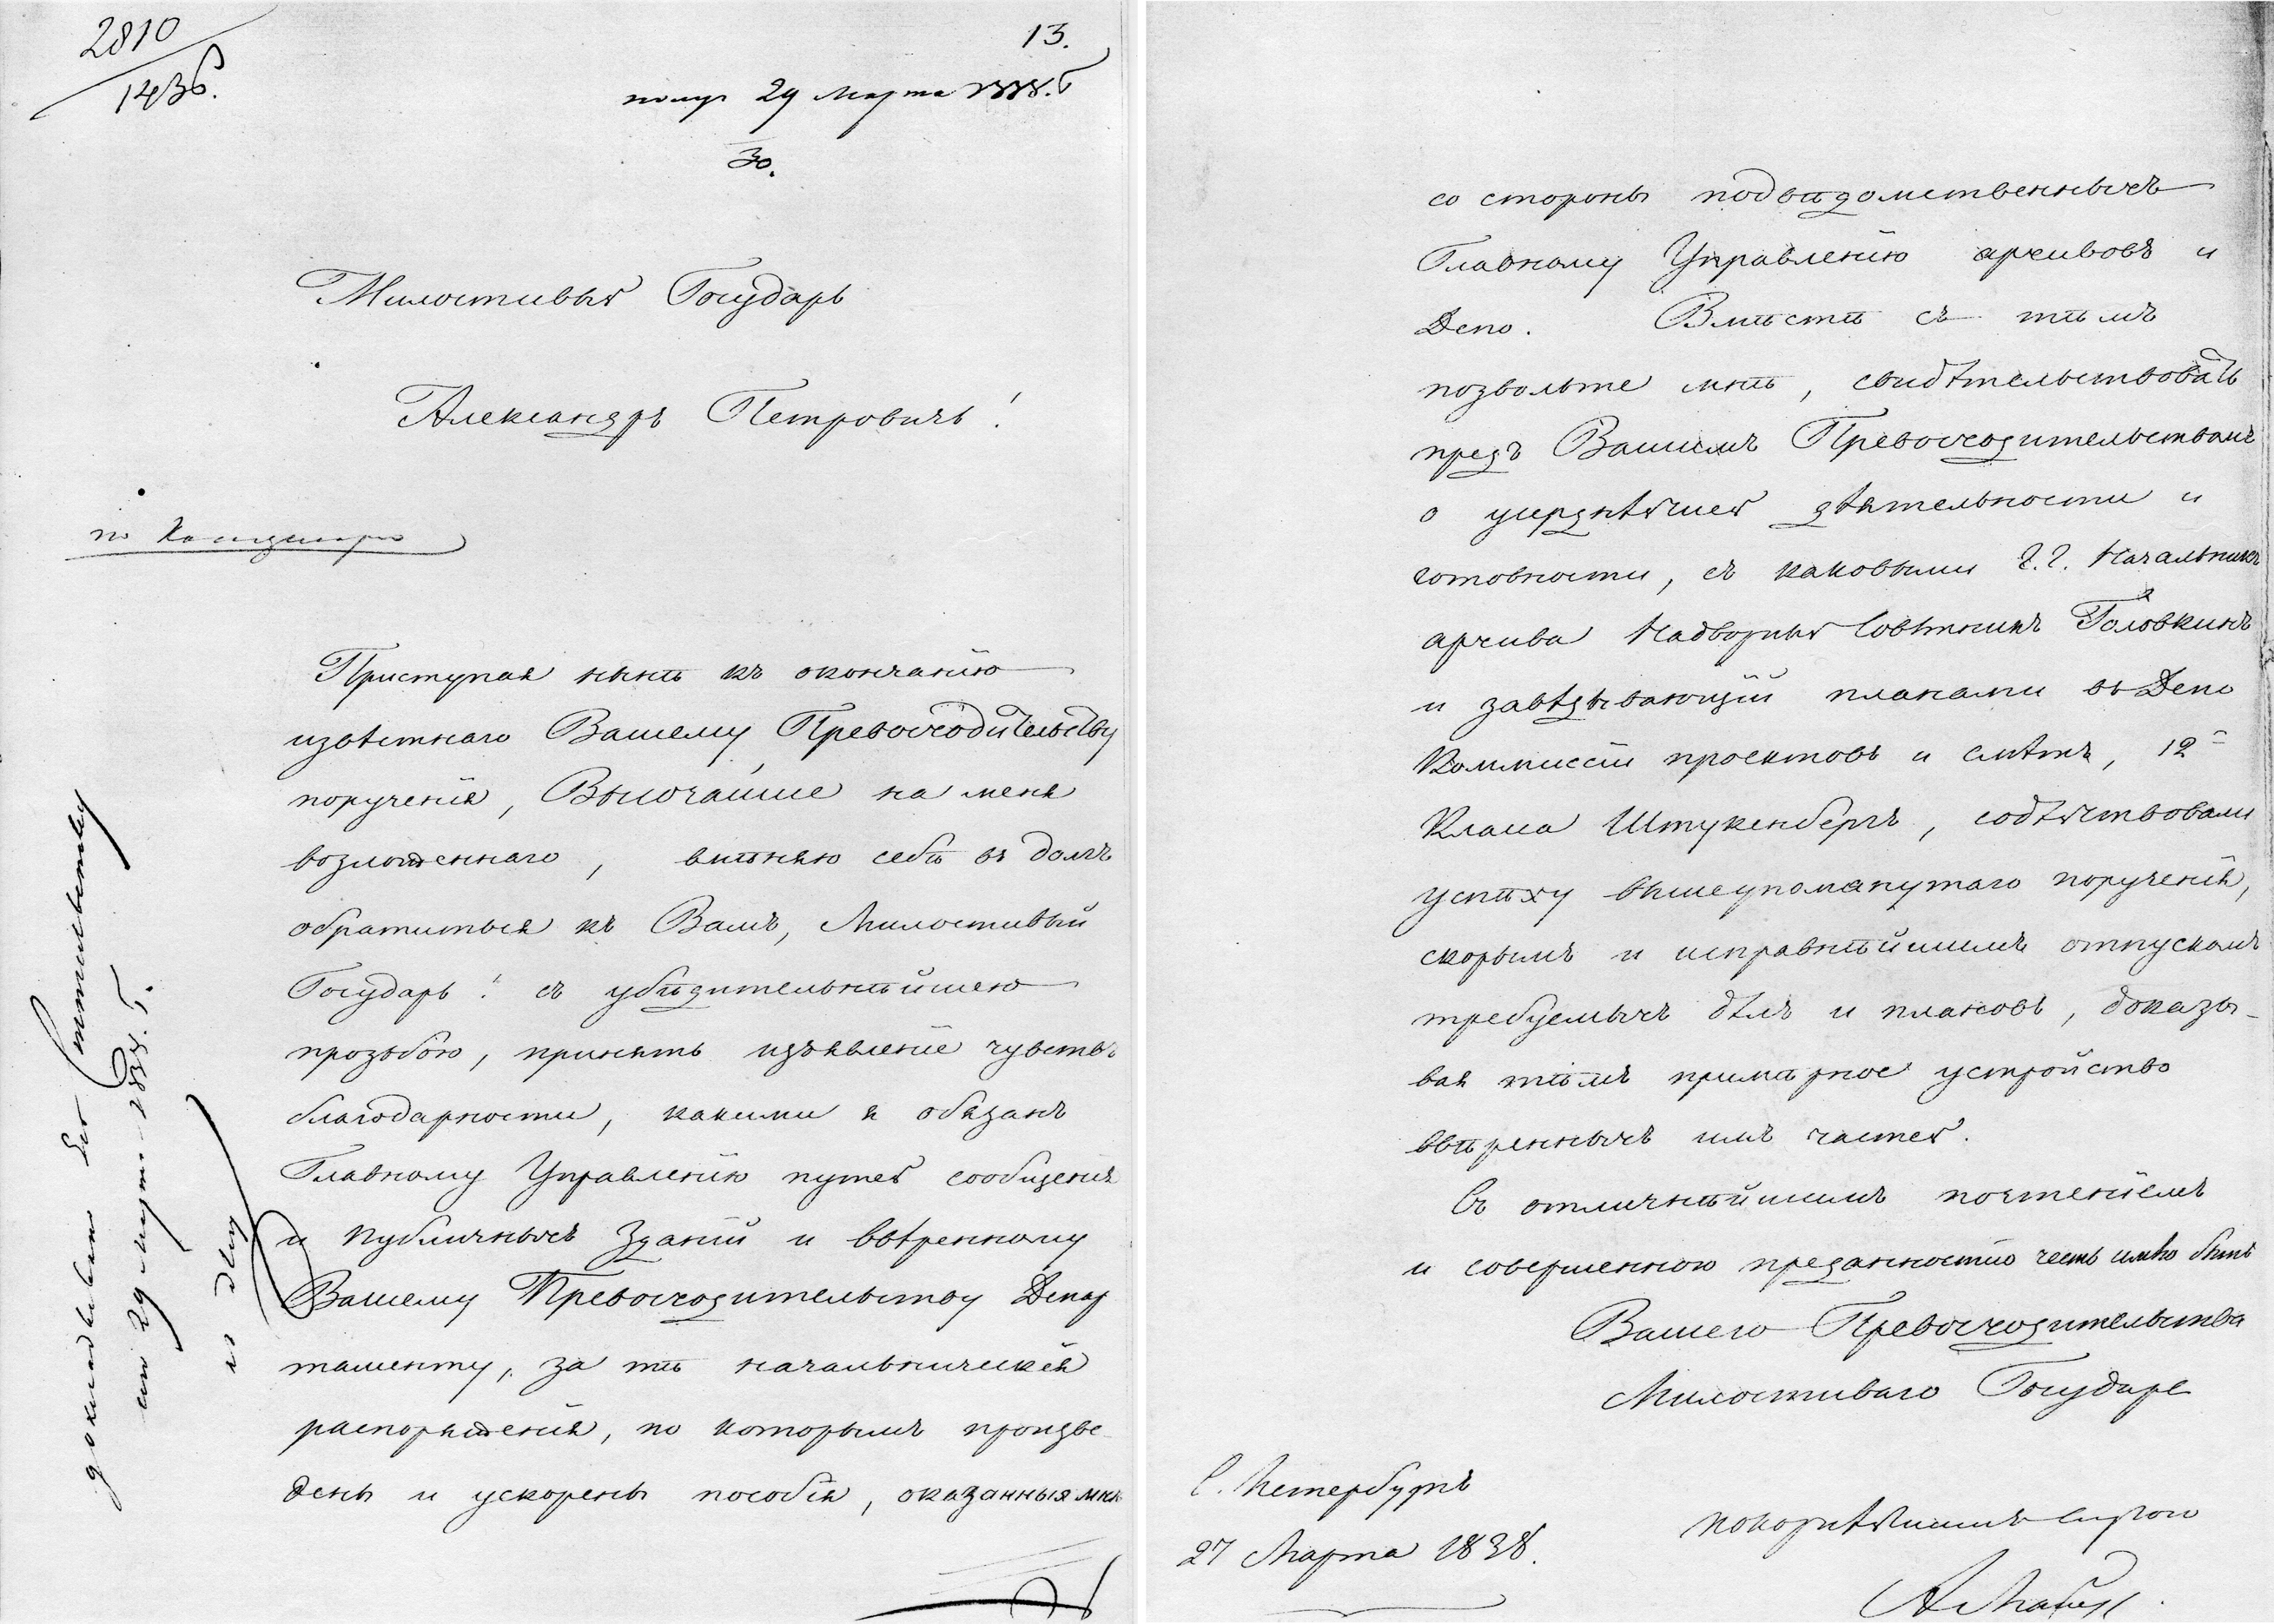 2810
1436.
13.
получ 29 Марта 1838.
30.
Милостивый Государь
Александръ Петровичъ!
по Канцеляріи
Приступая нынѣ къ окончанію
извѣстнаго Вашему Превосходительству
порученія, Высочайше на меня
возложеннаго, вмѣняю себѣ въ долгъ
обратиться къ Вамъ, Милостивый
Государь! съ убѣдительнѣйшею
прозьбою, принять изъявленіе чувствъ
благодарности, какими я обязанъ
Главному Управленію путей сообщенія
и публичныхъ Зданій и ввѣренному
Вашему Превосходительству Депар
таменту, за тѣ начальническія
распоряженія, по которымъ произве-
дены и ускорены пособія, оказанныя мнѣ
докладывалъ Его
29 Марта 1838.
со стороны подвѣдомственныхъ
Главному Управленію архивовъ и
Депо. Вмѣстѣ съ тѣмъ
позвольте мнѣ, свидѣтельствовать
предъ Вашимъ Превосходительствомъ
о усерднѣйшей дѣятельности и
готовности, съ каковыми г.г. Начальникъ
архива Надворный Совѣтникъ Головкинъ
и завѣдывающій планами въ Депо
Коммиссіи проектовъ и смѣтъ, 12
Класса Штукенбергъ, содѣйствовали
успѣху вышеупомянутаго порученія,
скорымъ и исправнѣйшимъ отпускомъ
требуемыхъ дѣлъ и плановъ, доказы-
вая тѣмъ примѣрное устройство
ввѣренныхъ имъ частей.
Съ отличнѣйшимъ почтеніемъ
и совершенною преданностію честь имѣю быть
Вашего Превосходительства
Милостиваго Государя
С. Петербургъ
27 Марта 1838.
покорнѣйшимъ слугою